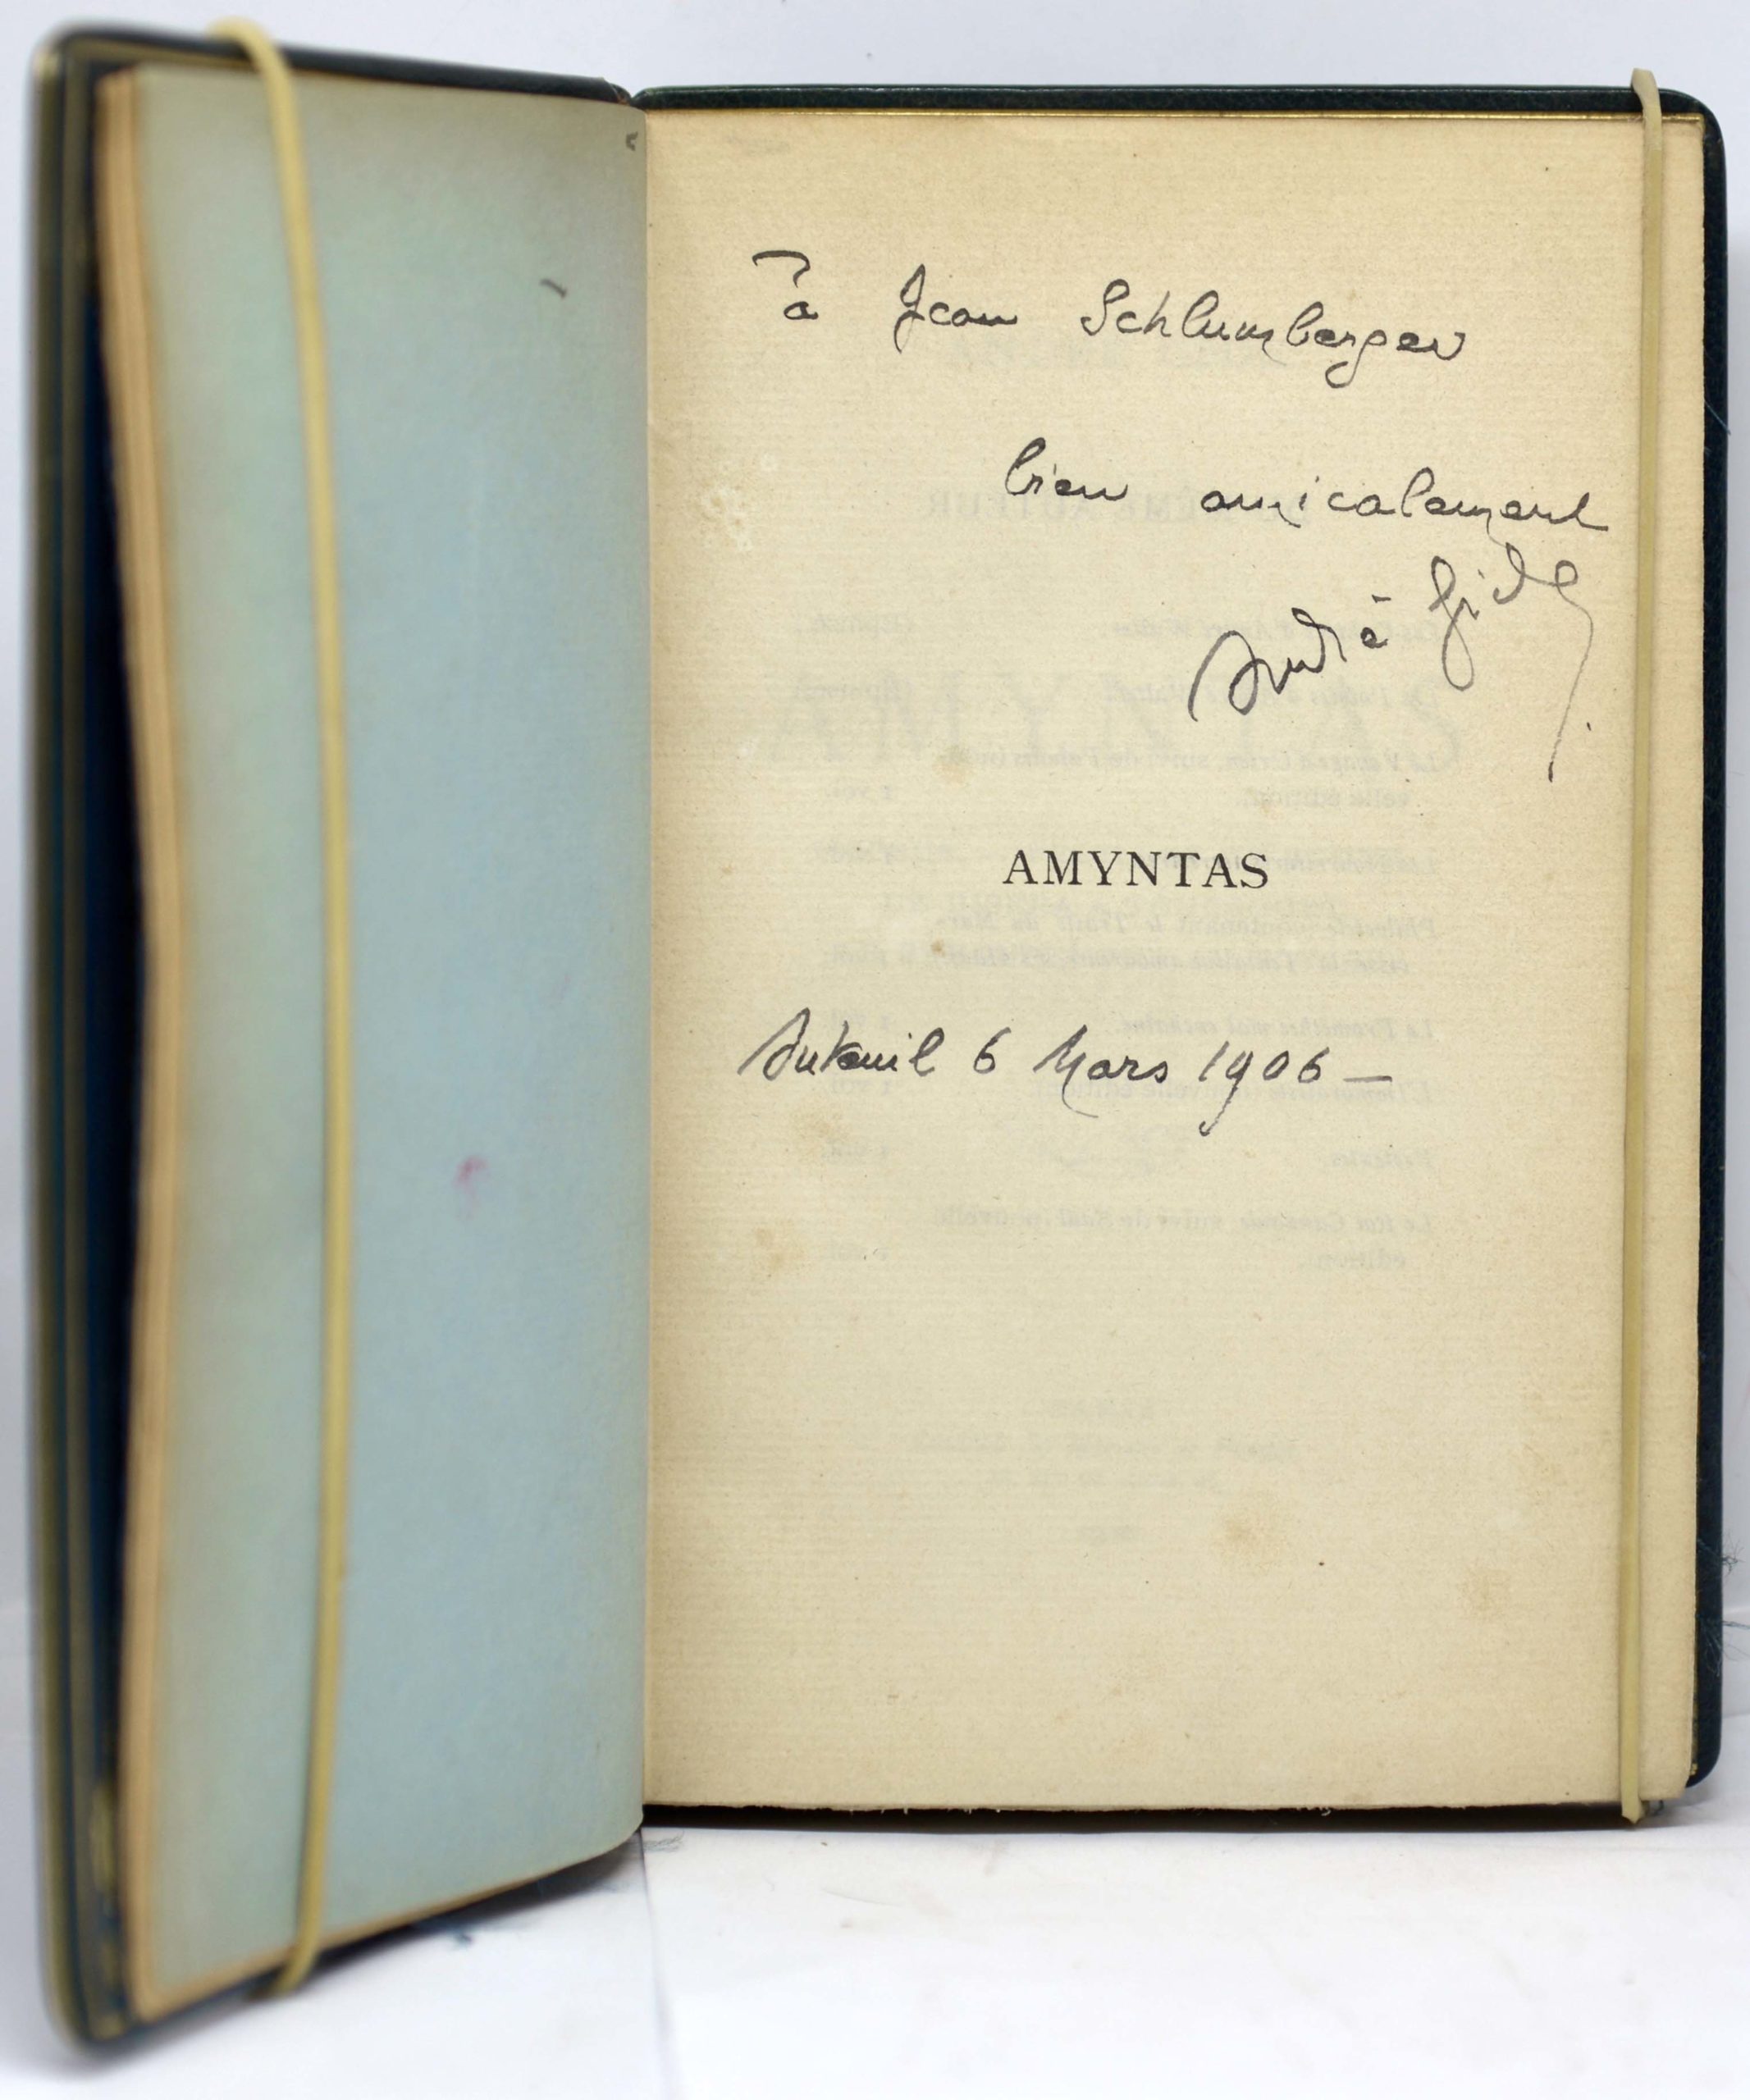 à Jean Schlumberger
bien amicalement
André Gide
AMYNTAS
Auteuil 6 Mars 1906 —